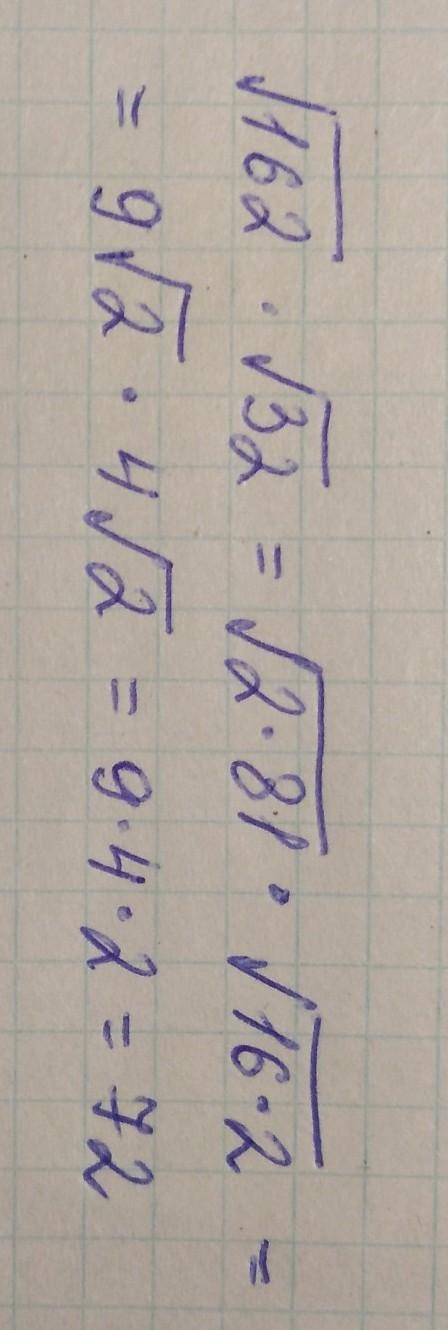 √162 · √32 = √2·81 · √16·2 =
= 9√2 · 4√2 = 9·4·2 = 72